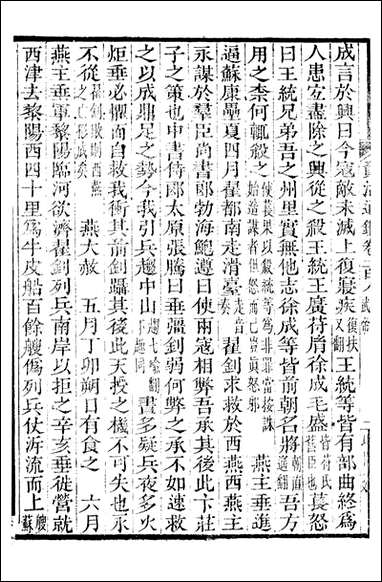 成言於興曰今寇敵未滅上復寢疾復扶又翻王統等皆有部曲終爲
人患宜盡除之興從之殺王統王廣苻胤徐成毛盛皆苻氏舊臣也萇怒
曰王統兄弟吾之州里實無他志徐成等皆前朝名將朝直遙翻吾方
用之柰何輒殺之 燕主垂進
逼蘇康壘夏四月翟都南走滑臺走音奏翟釗求救於西燕西燕主
永謀於羣臣尚書郎勃海鮑遵曰使兩寇相弊吾承其後此卞莊
子之策也中書侍郎太原張騰曰垂彊釗弱何弊之承不如速救
之以成鼎足之勢今我引兵趨中山趨七喻翻下趨同晝多疑兵夜多火
炬垂必懼而自救我衝其前釗躡其後此天授之機不可失也永
不從 燕大赦 五月丁卯朔日有食之 六月
燕主垂軍黎陽臨河欲濟翟釗列兵南岸以拒之辛亥垂徙營就
西津去黎陽西四十里爲牛皮船百餘艘僞列兵仗泝流而上艘蘇